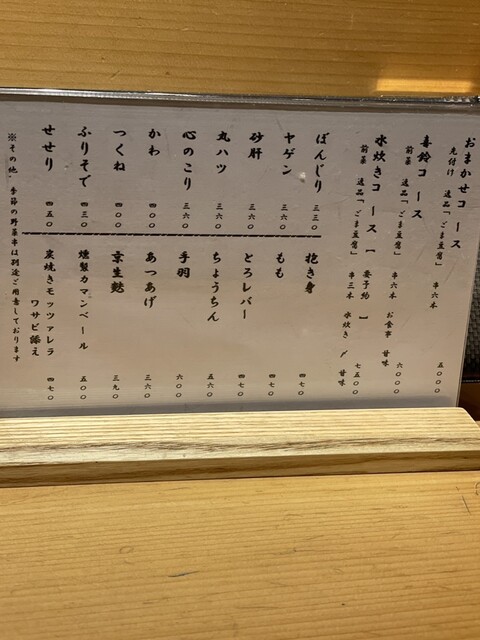 おまかせコース
先付け 逸品「ごま豆腐」 串六本 五〇〇〇
喜鈴コース
前菜 逸品「ごま豆腐」 串六本 お食事 甘味 六〇〇〇
水炊きコース【要予約】
前菜 逸品「ごま豆腐」 串三本 水炊き 〆 甘味 七五〇〇
ぼんじり 三三〇
ヤゲン 三六〇
砂肝 三六〇
丸ハツ 三六〇
心のこり 三六〇
かわ 四〇〇
つくね 四〇〇
ふりそで 四三〇
せせり 四五〇
抱き身 四七〇
もも 四七〇
とろレバー 四七〇
ちょうちん 五六〇
手羽 六〇〇
あつあげ 三六〇
京生麩 三九〇
燻製カマンベール 五〇〇
炭焼きモッツァレラ
ワサビ添え 四七〇
※その他、季節の野菜串は別途ご用意しております